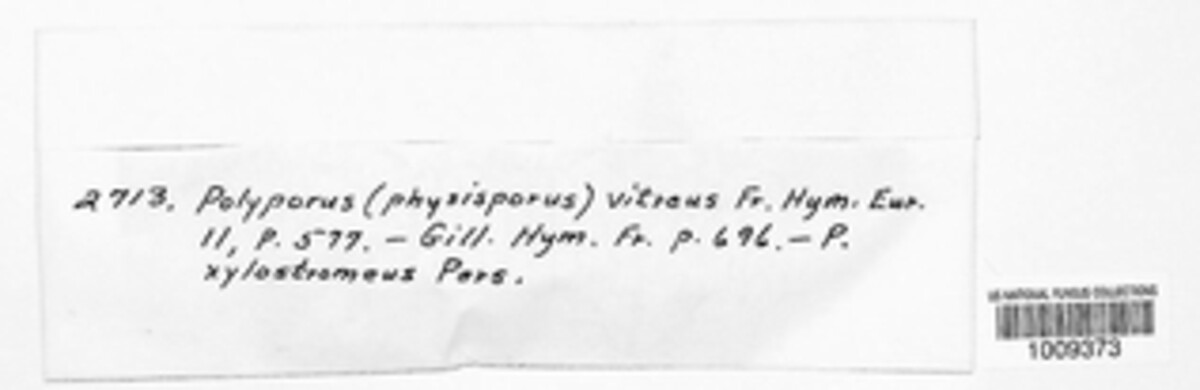 2713. Polyporus (physisporus) vitreus Fr. Hym. Eur.
II, P. 577. — Gill. Hym. Fr. p. 696. — P.
xylostromeus Pers.
US NATIONAL FUNGUS COLLECTIONS
1009373